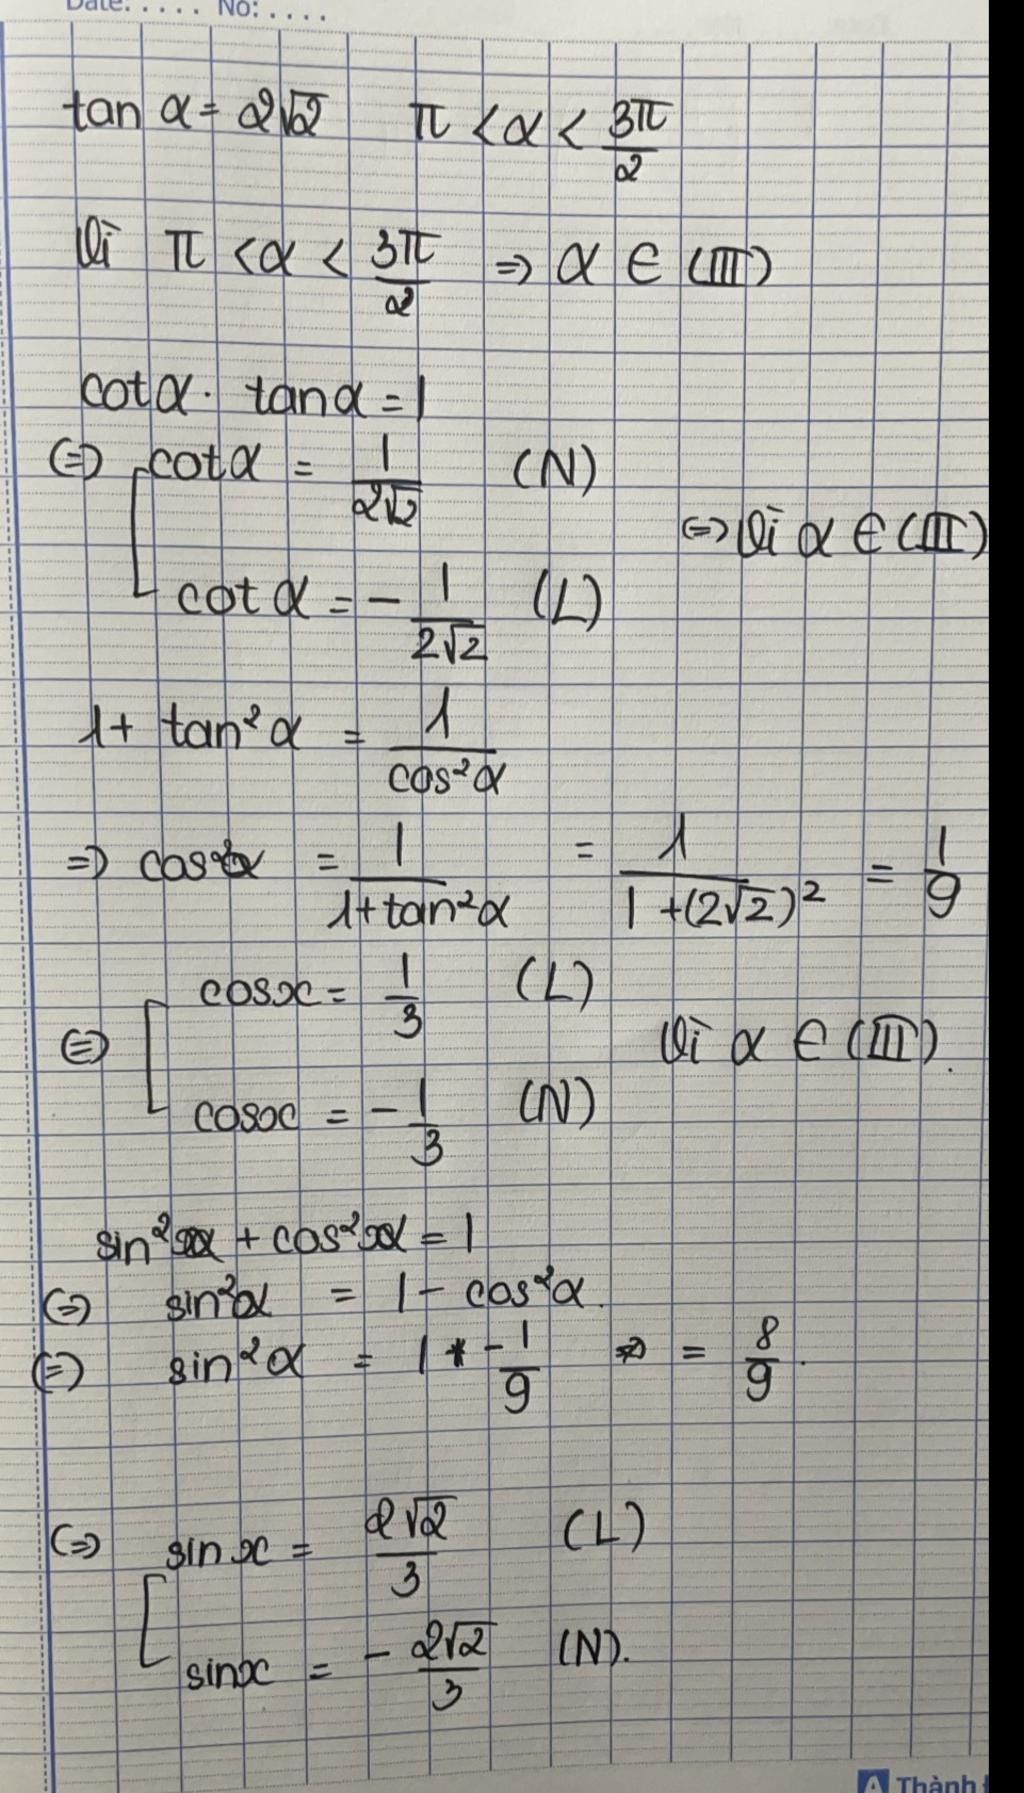 Date: .... No: ....
tan α = 2√2 π < α < 3π/2
Vì π < α < 3π/2 ⇒ α ∈ (III)
cotα . tanα = 1
⇔ [ cotα = 1/2√2 (N)
⇔ Vì α ∈ (III)
cotα = - 1/2√2 (L)
1 + tan²α = 1/cos²α
⇒ cos²α = 1/1+tan²α = 1/1+(2√2)² = 1/9
⇔ [ cosx = 1/3 (L)
Vì α ∈ (III).
cosx = - 1/3 (N)
sin²α + cos²α = 1
⇔ sin²α = 1 - cos²α.
⇔ sin²α = 1 - 1/9 = 8/9.
⇔ [ sinx = 2√2/3 (L)
sinx = - 2√2/3 (N).
Thành